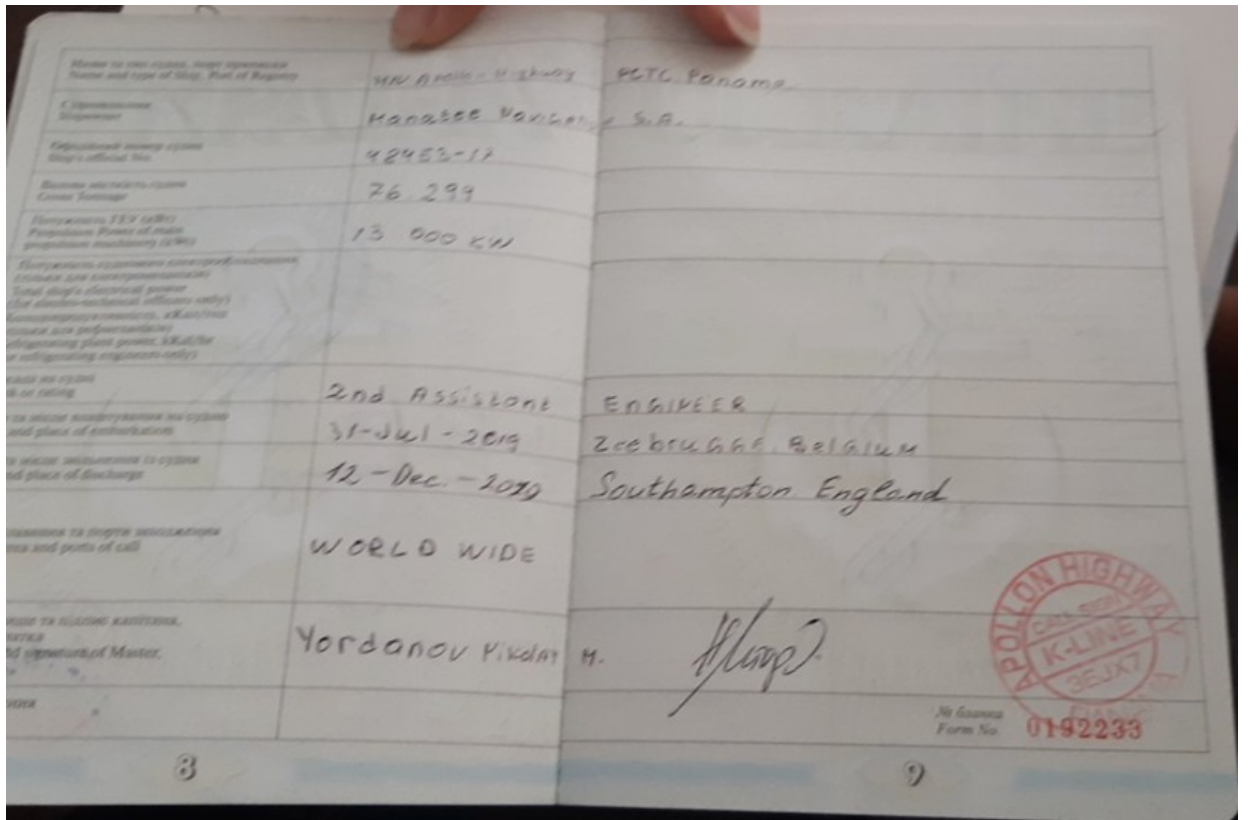 Назва та тип судна, порт приписки
Name and type of Ship, Port of Registry
M/V Apollon Highway PCTC Panama
Судновласник
Shipowner
Manatee S.A.
Офіційний номер судна
Ship's official No.
48453-17
Валова місткість судна
Gross Tonnage
76.299
Propulsion Power of main
propulsion machinery (kWt)
13 000 KW
Total ship's electrical power
(for electro-technical officers only)
refrigerating plant power, kKal/hr
refrigerating engineers only)
or rating
2nd Assistant ENGINEER
and place of embarkation
31-Jul-2019 Zeebrugge, Belgium
and place of discharge
12-Dec.-2019 Southampton England
and ports of call
WORLD WIDE
signature of Master,
Yordanov Nikolay M.
APOLLON HIGHWAY
CALL SIGN
K-LINE
3EJX7
№ бланка
Form No. 0192233
8 9